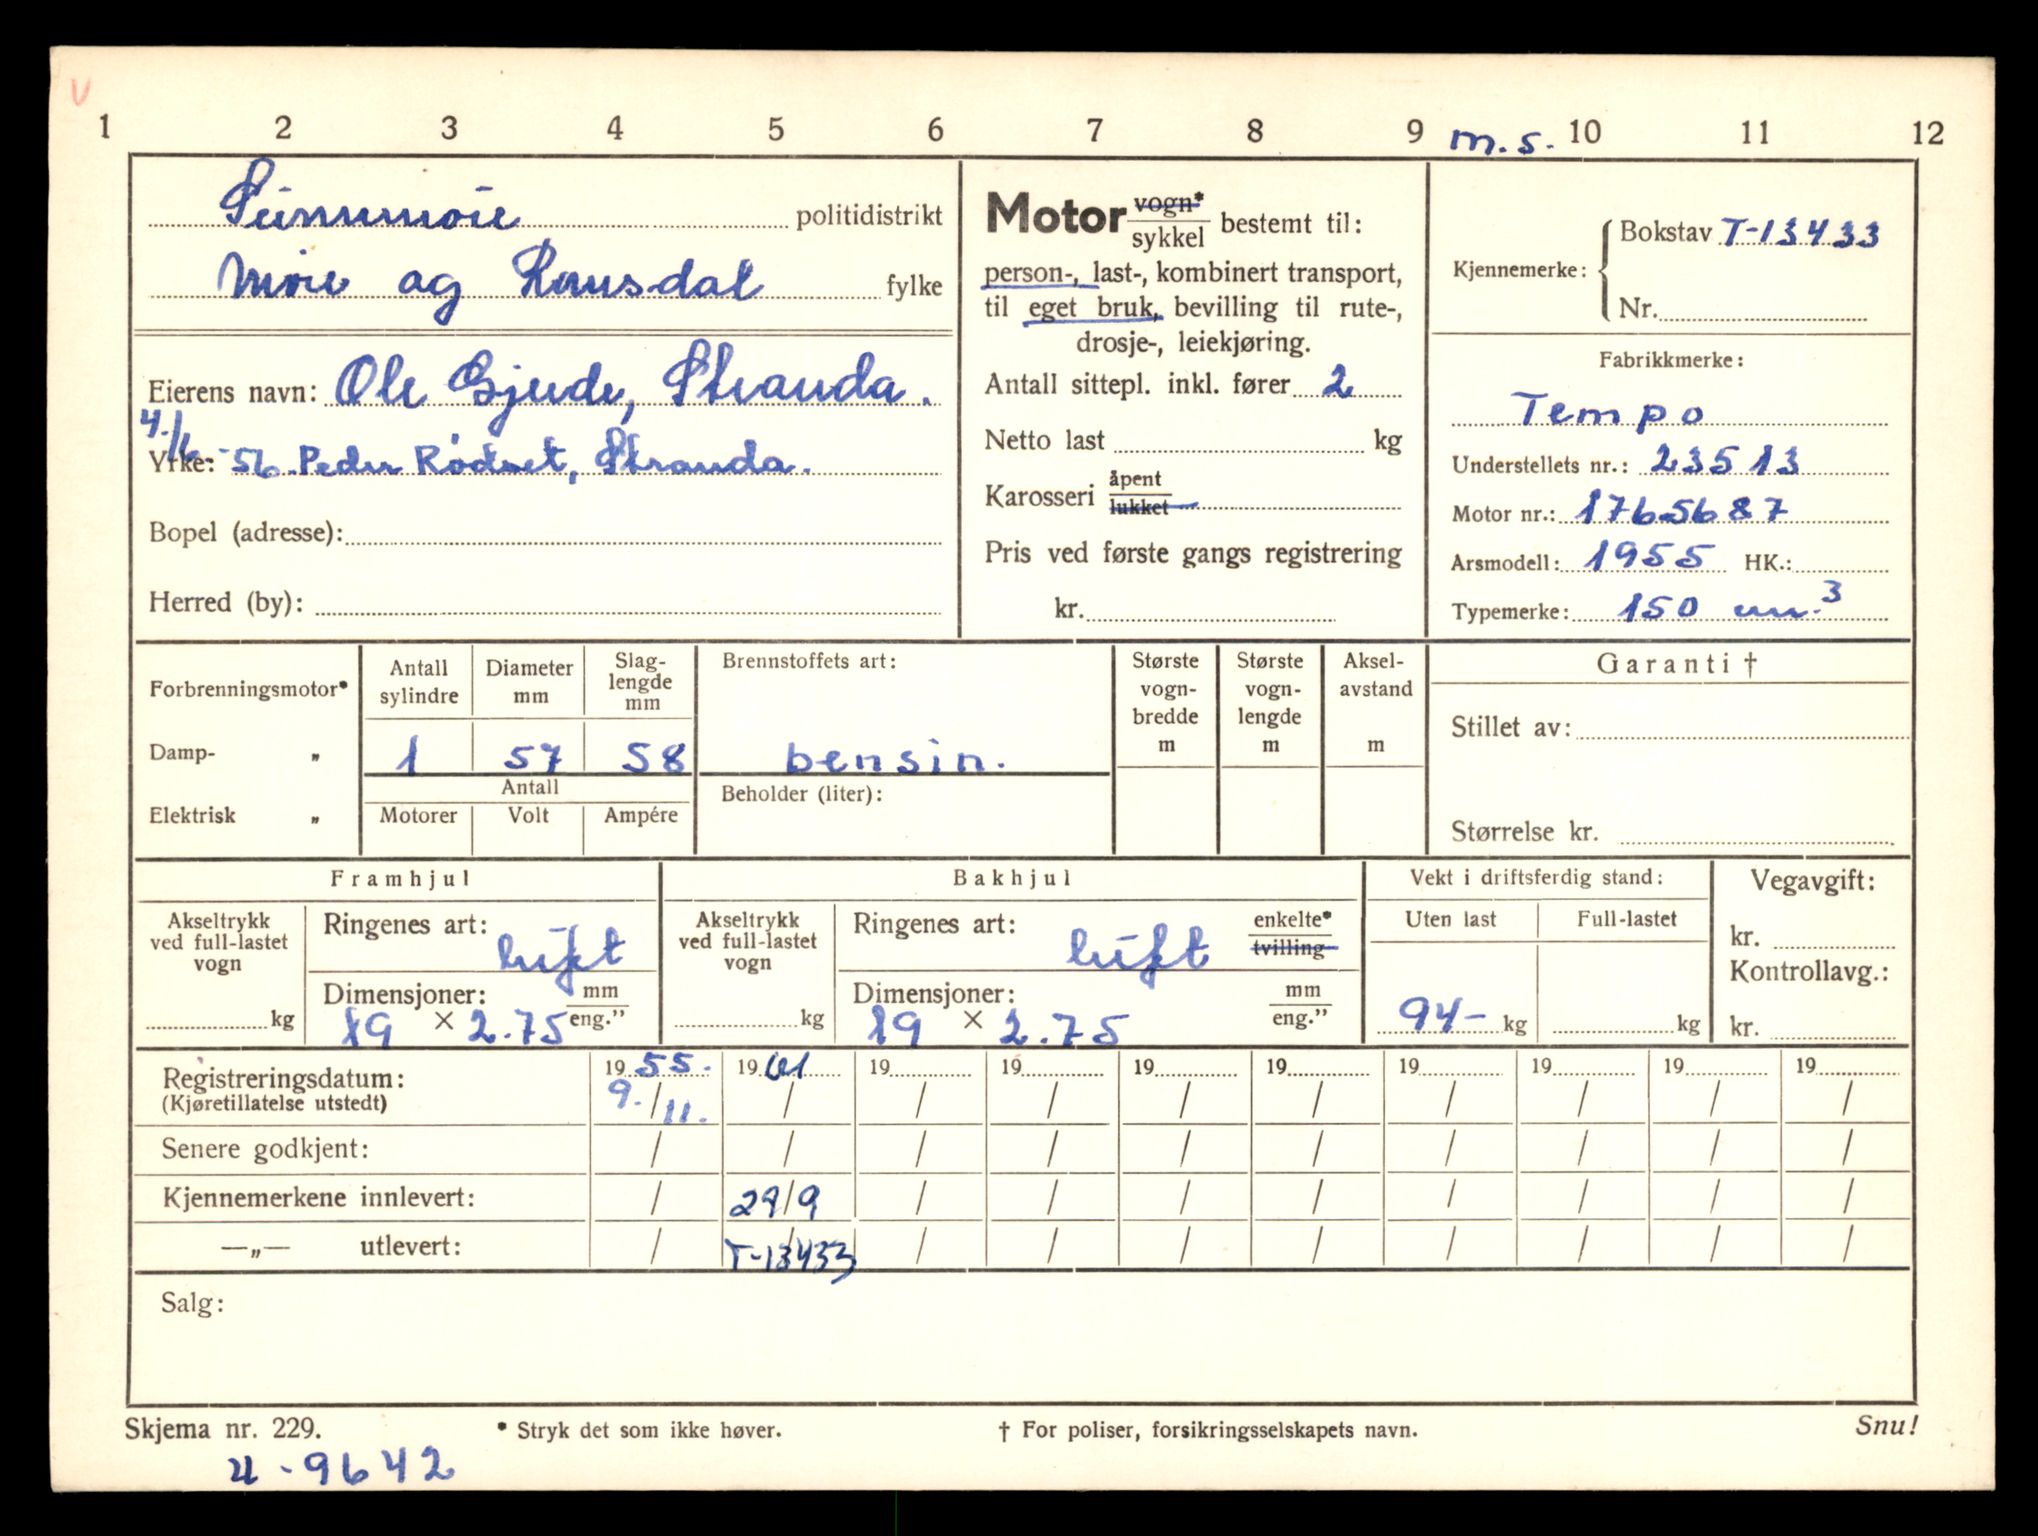 V
1 2 3 4 5 6 7 8 9 m.s. 10 11 12
Sunnmøre politidistrikt
Møre og Romsdal fylke
Eierens navn: Ole Gjerde, Stranda.
4./6-56 Peder Rødset, Stranda.
Yrke:
Bopel (adresse):
Herred (by):
Motor vogn*/sykkel bestemt til:
person-, last-, kombinert transport,
til eget bruk, bevilling til rute-,
drosje-, leiekjøring.
Antall sittepl. inkl. fører 2
Netto last kg
Karosseri åpent/lukket
Pris ved første gangs registrering
kr.
Kjennemerke: Bokstav T-13433
Nr.
Fabrikkmerke:
Tempo
Understellets nr.: 23513
Motor nr.: 1765687
Arsmodell: 1955 HK.:
Typemerke: 150 cm.3
Forbrenningsmotor*
Damp- „
Elektrisk „
Antall sylindre
1
Diameter mm
57
Slag-lengde mm
58
Antall
Motorer Volt Ampére
Brennstoffets art:
bensin.
Beholder (liter):
Største vogn-bredde m
Største vogn-lengde m
Aksel-avstand m
Garanti †
Stillet av:
Størrelse kr.
Framhjul
Akseltrykk ved full-lastet vogn
kg
Ringenes art: luft
Dimensjoner: mm/eng."
19 × 2.75
Bakhjul
Akseltrykk ved full-lastet vogn
kg
Ringenes art: luft enkelte*/tvilling
Dimensjoner: mm/eng."
19 × 2.75
Vekt i driftsferdig stand:
Uten last Full-lastet
94- kg kg
Vegavgift:
kr.
Kontrollavg.:
kr.
Registreringsdatum: 19 55. 19 61 19 19 19 19 19 19 19 19
(Kjøretillatelse utstedt) 9./11. / / / / / / / / /
Senere godkjent: / / / / / / / / / /
Kjennemerkene innlevert: / 29/9 / / / / / / / /
—„— utlevert: / T-13433 / / / / / / / /
Salg:
Skjema nr. 229. * Stryk det som ikke høver. † For poliser, forsikringsselskapets navn. Snu!
U-9642